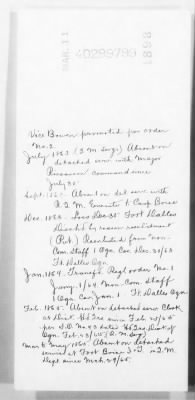 MAR. 11
40299799
1898
Vice Bowen promoted per order
No. 2
July 1863 (2 M Sergt) Absent on
detached serv. with Major
command since
July 20
Sept. 1863. Absent on det. serv. with
A 2 M. to Camp Boise
Dec 1863. Loss Dec 30 Fort Dalles
Disch'd by reason reenlistment
(Pvt) Reenlisted from "non
Com Staff 1 Ogn Cav Dec 30/63
Ft Dalles Ogn
Jan. 1864. Transfd Regl order No. 1
Jany 1/64 Non Com Staff
1 Ogn Cav Jan 1 Ft Dalles Ogn
Feb. 1865. Absent on detached serv. Clerk
at Dist. Hd Qrs since Feb 25/65
per S.O. No 43 dated Hd Qrs Dist. of
Ogn. Feb 23/65 (2 M. Sergt)
Mar & May 1865. Absent on detached
service at Fort Boise I.T. in 2 M.
Dept since Mch 29/65.